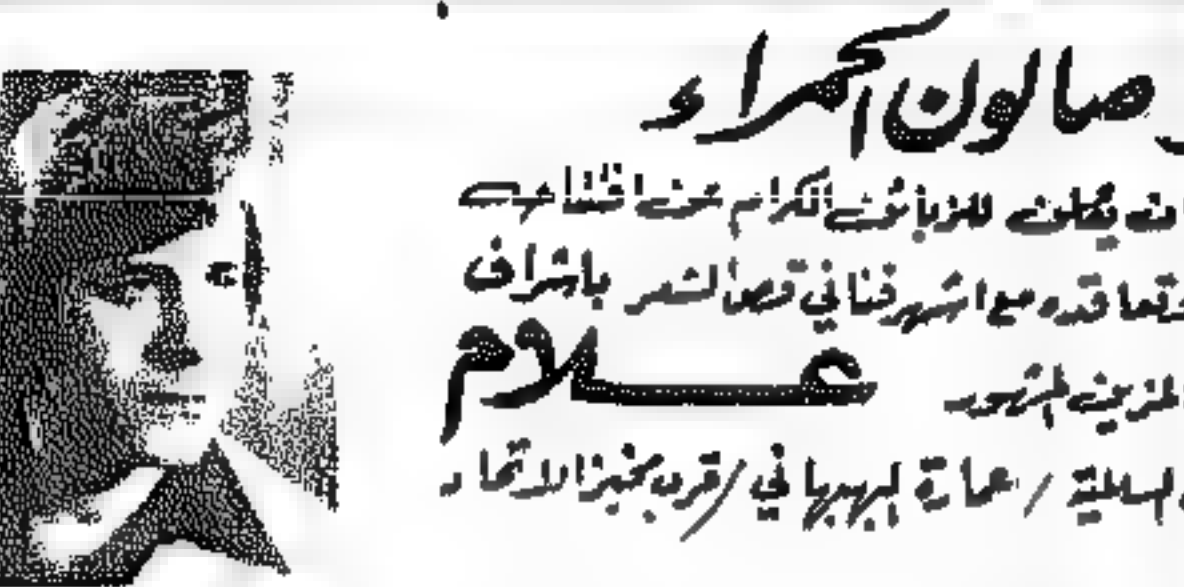 صالون الحمراء
يعلن للزبائن الكرام عن افتتاحه
وتعاقده مع اشهر فناني قص الشعر باشراف
المزين المشهور عـــلام
السالمية / عمارة البهبهاني / قرب مخبز الاتحاد